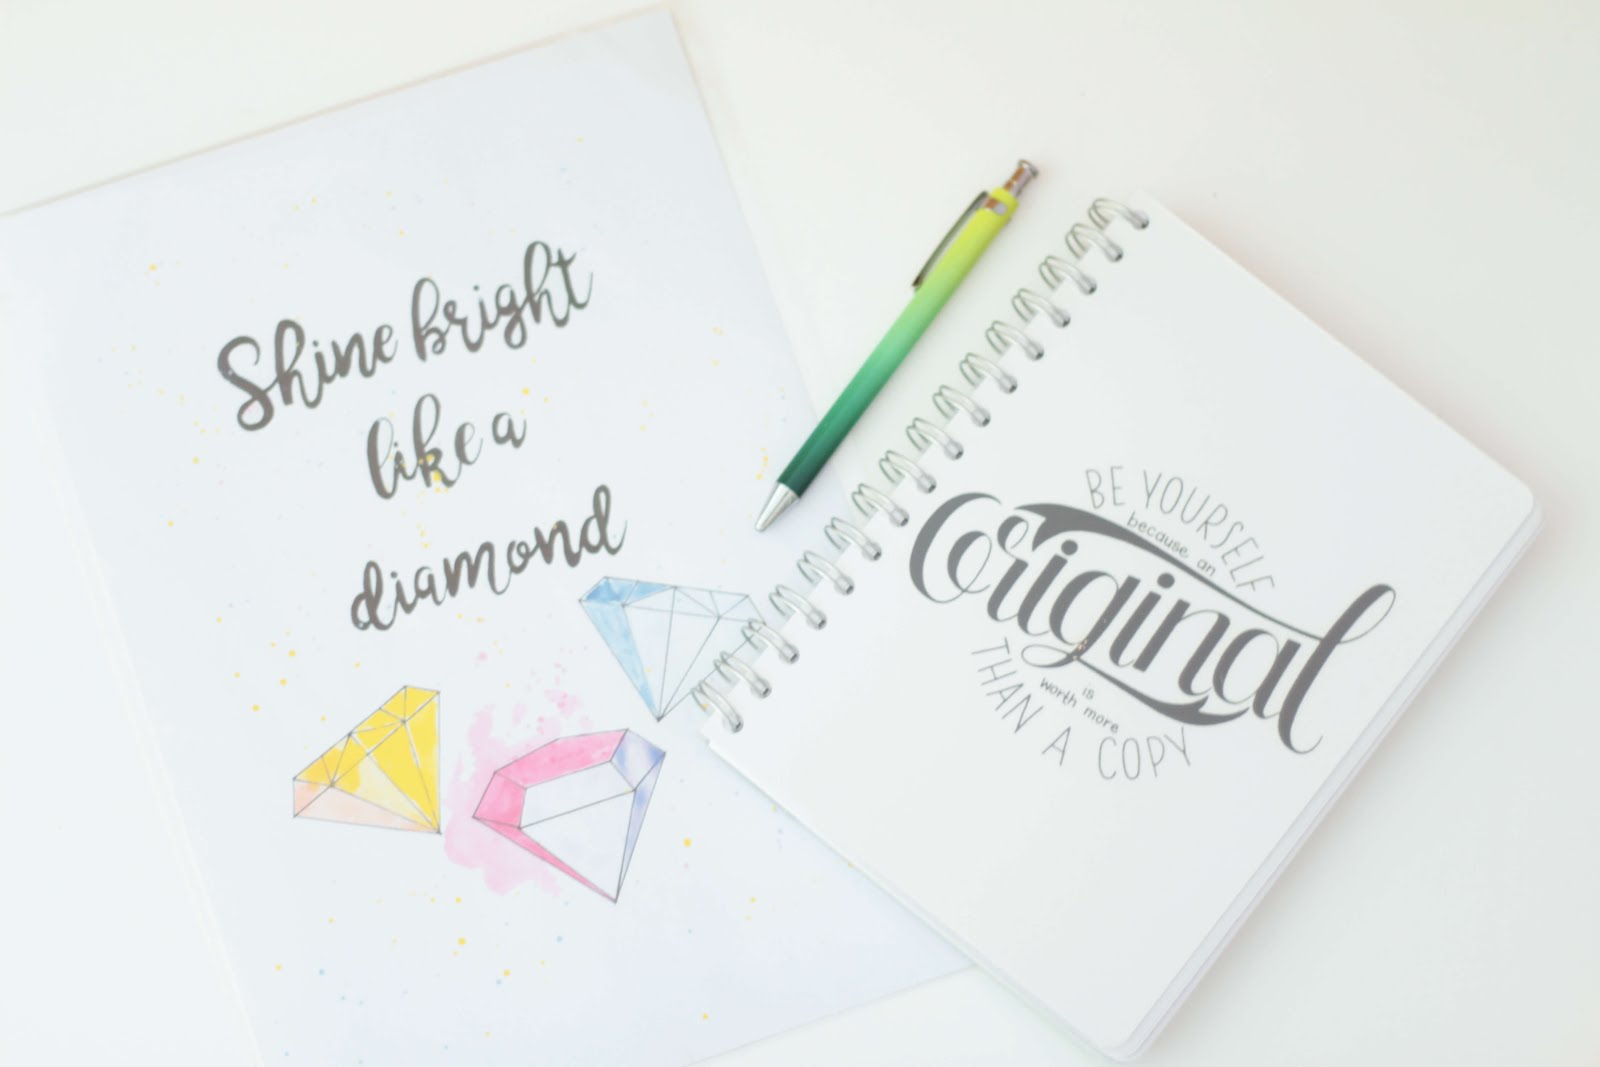 Shine bright
like a
diamond
BE YOURSELF
because an
Original
is
worth more
THAN A COPY